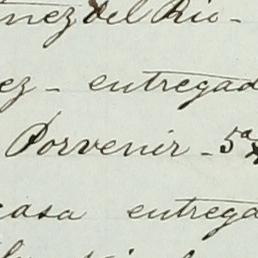 nez del Rio -
ez - entregad
Porvenir - 5ª
casa entrega